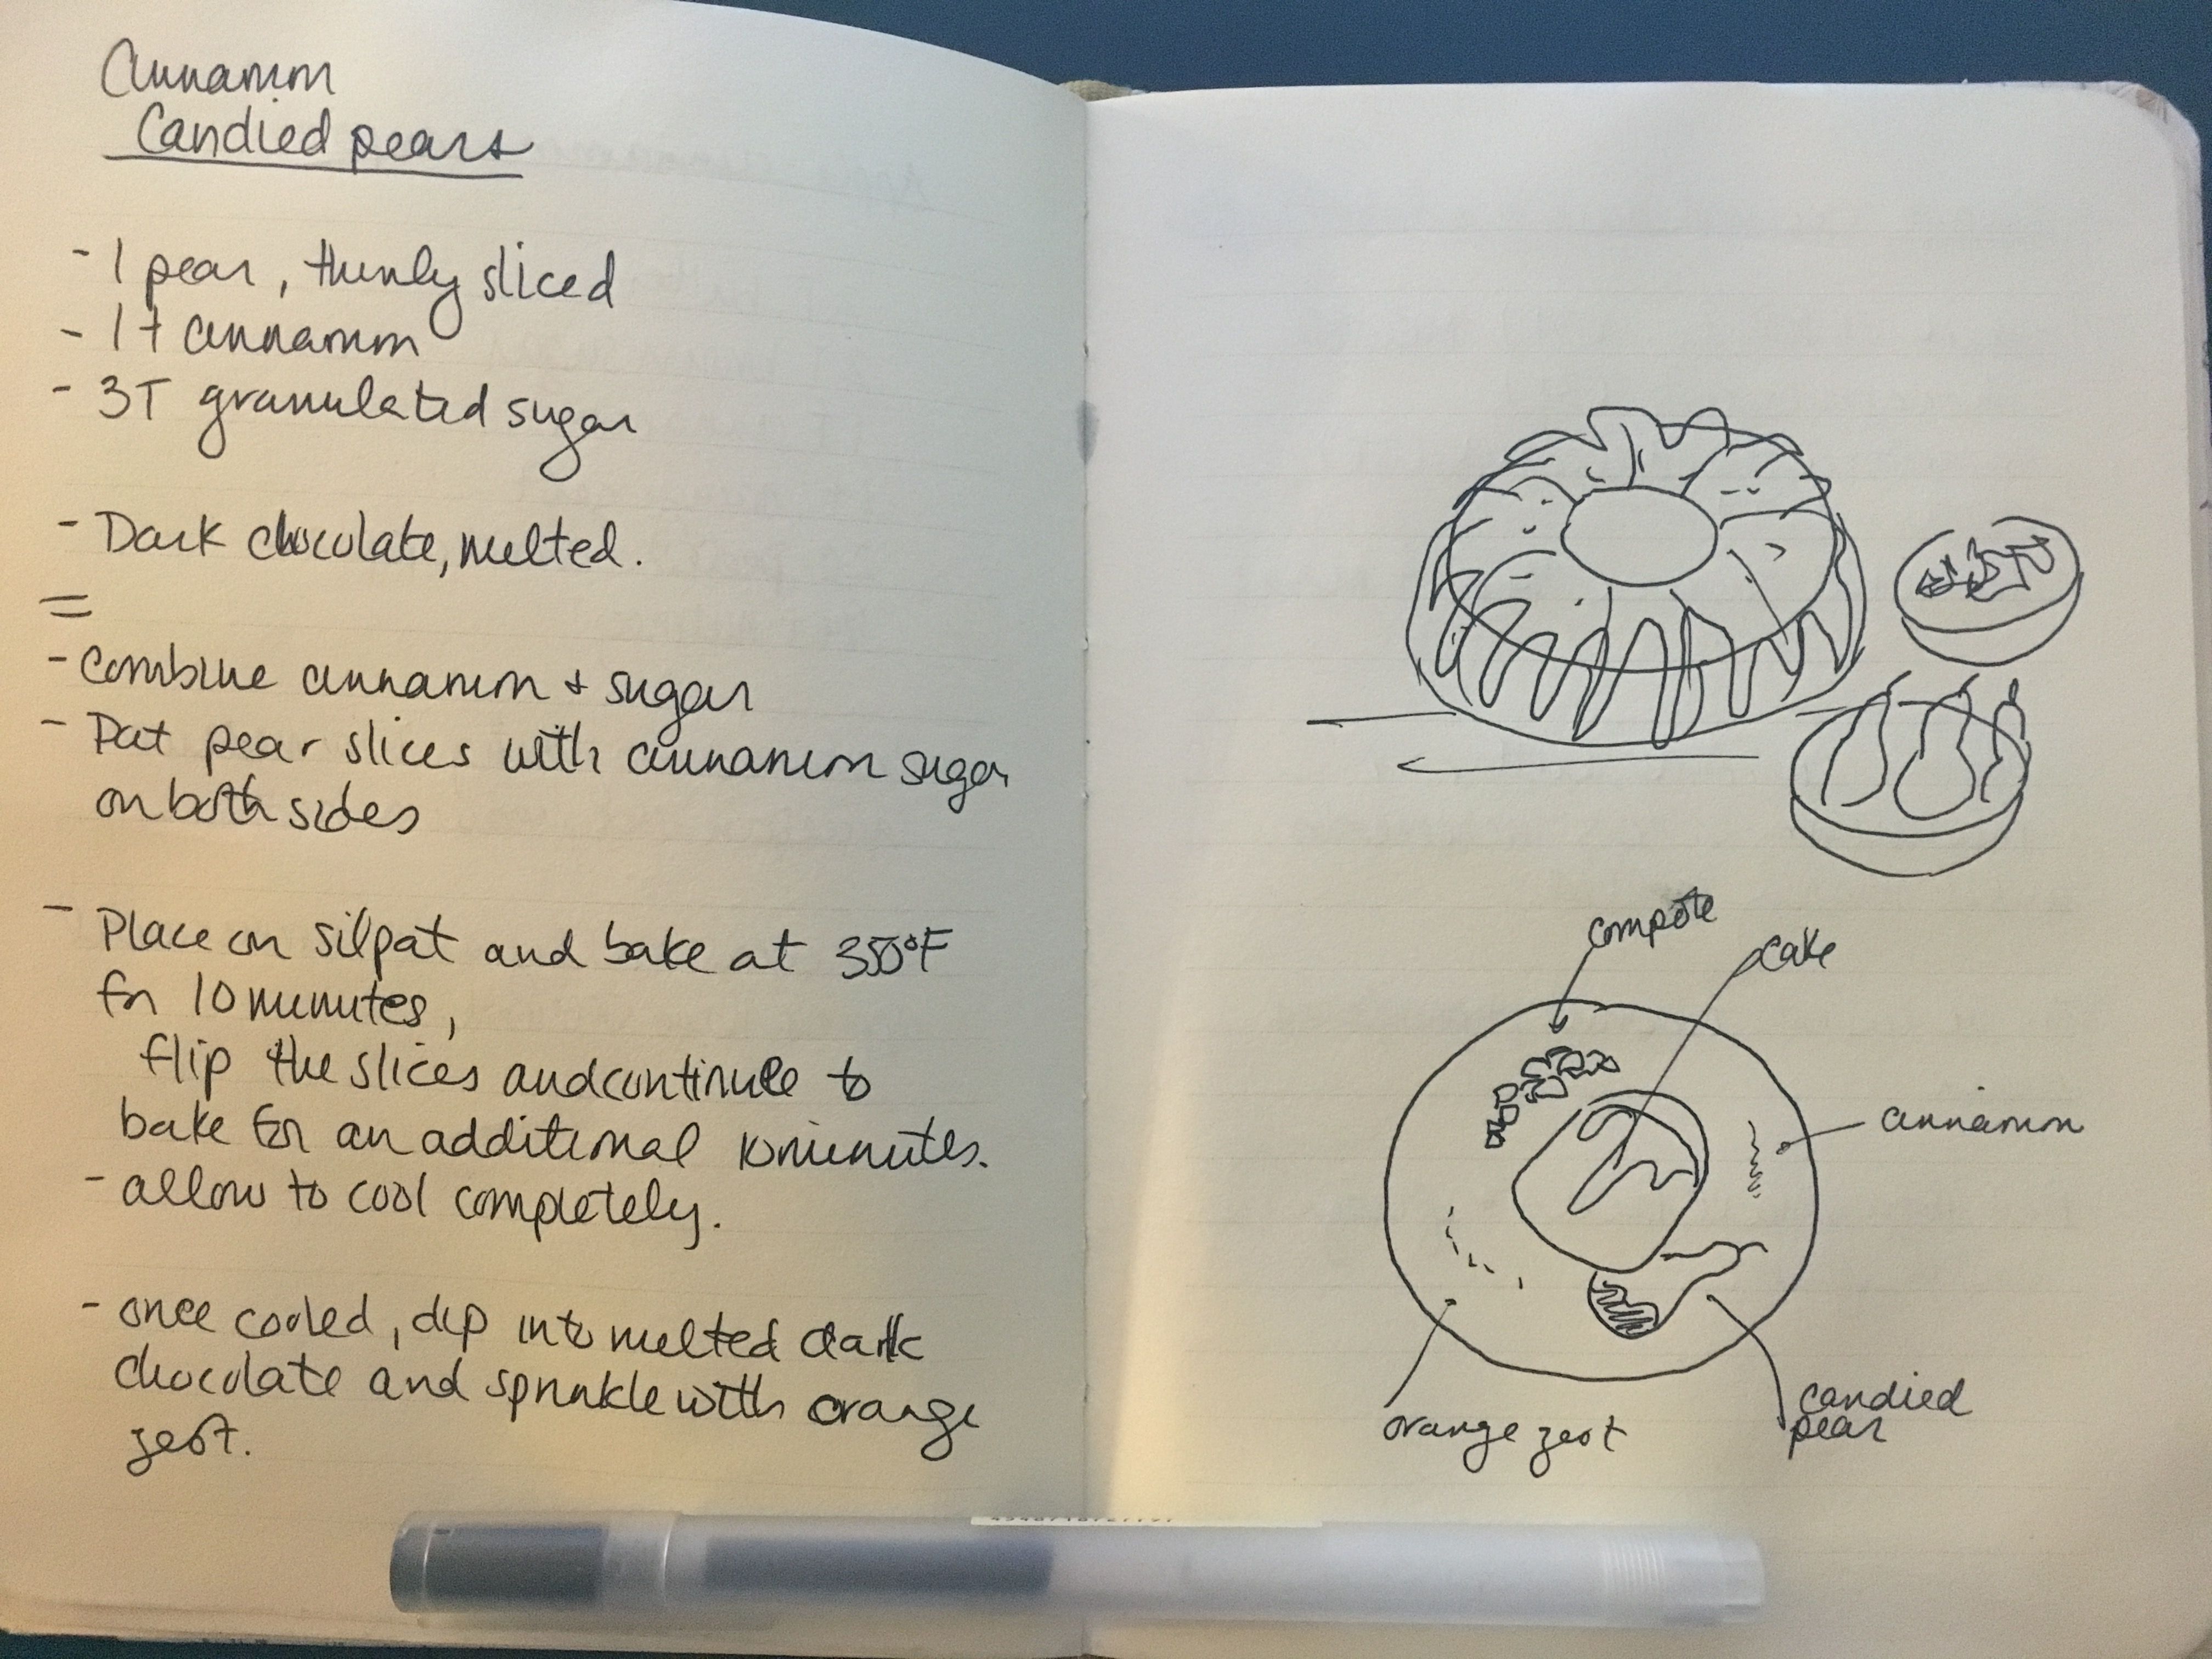 Cinnamon
Candied pears
- 1 pear, thinly sliced
- 1t cinnamon
- 3T granulated sugar
- Dark chocolate, melted.
=
- Combine cinnamon + sugar
- Pat pear slices with cinnamon sugar
on both sides
- Place on silpat and bake at 350°F
for 10 minutes,
flip the slices and continue to
bake for an additional 10 minutes.
- allow to cool completely.
- once cooled, dip into melted dark
chocolate and sprinkle with orange
zest.
compote
cake
cinnamon
candied
pear
orange zest